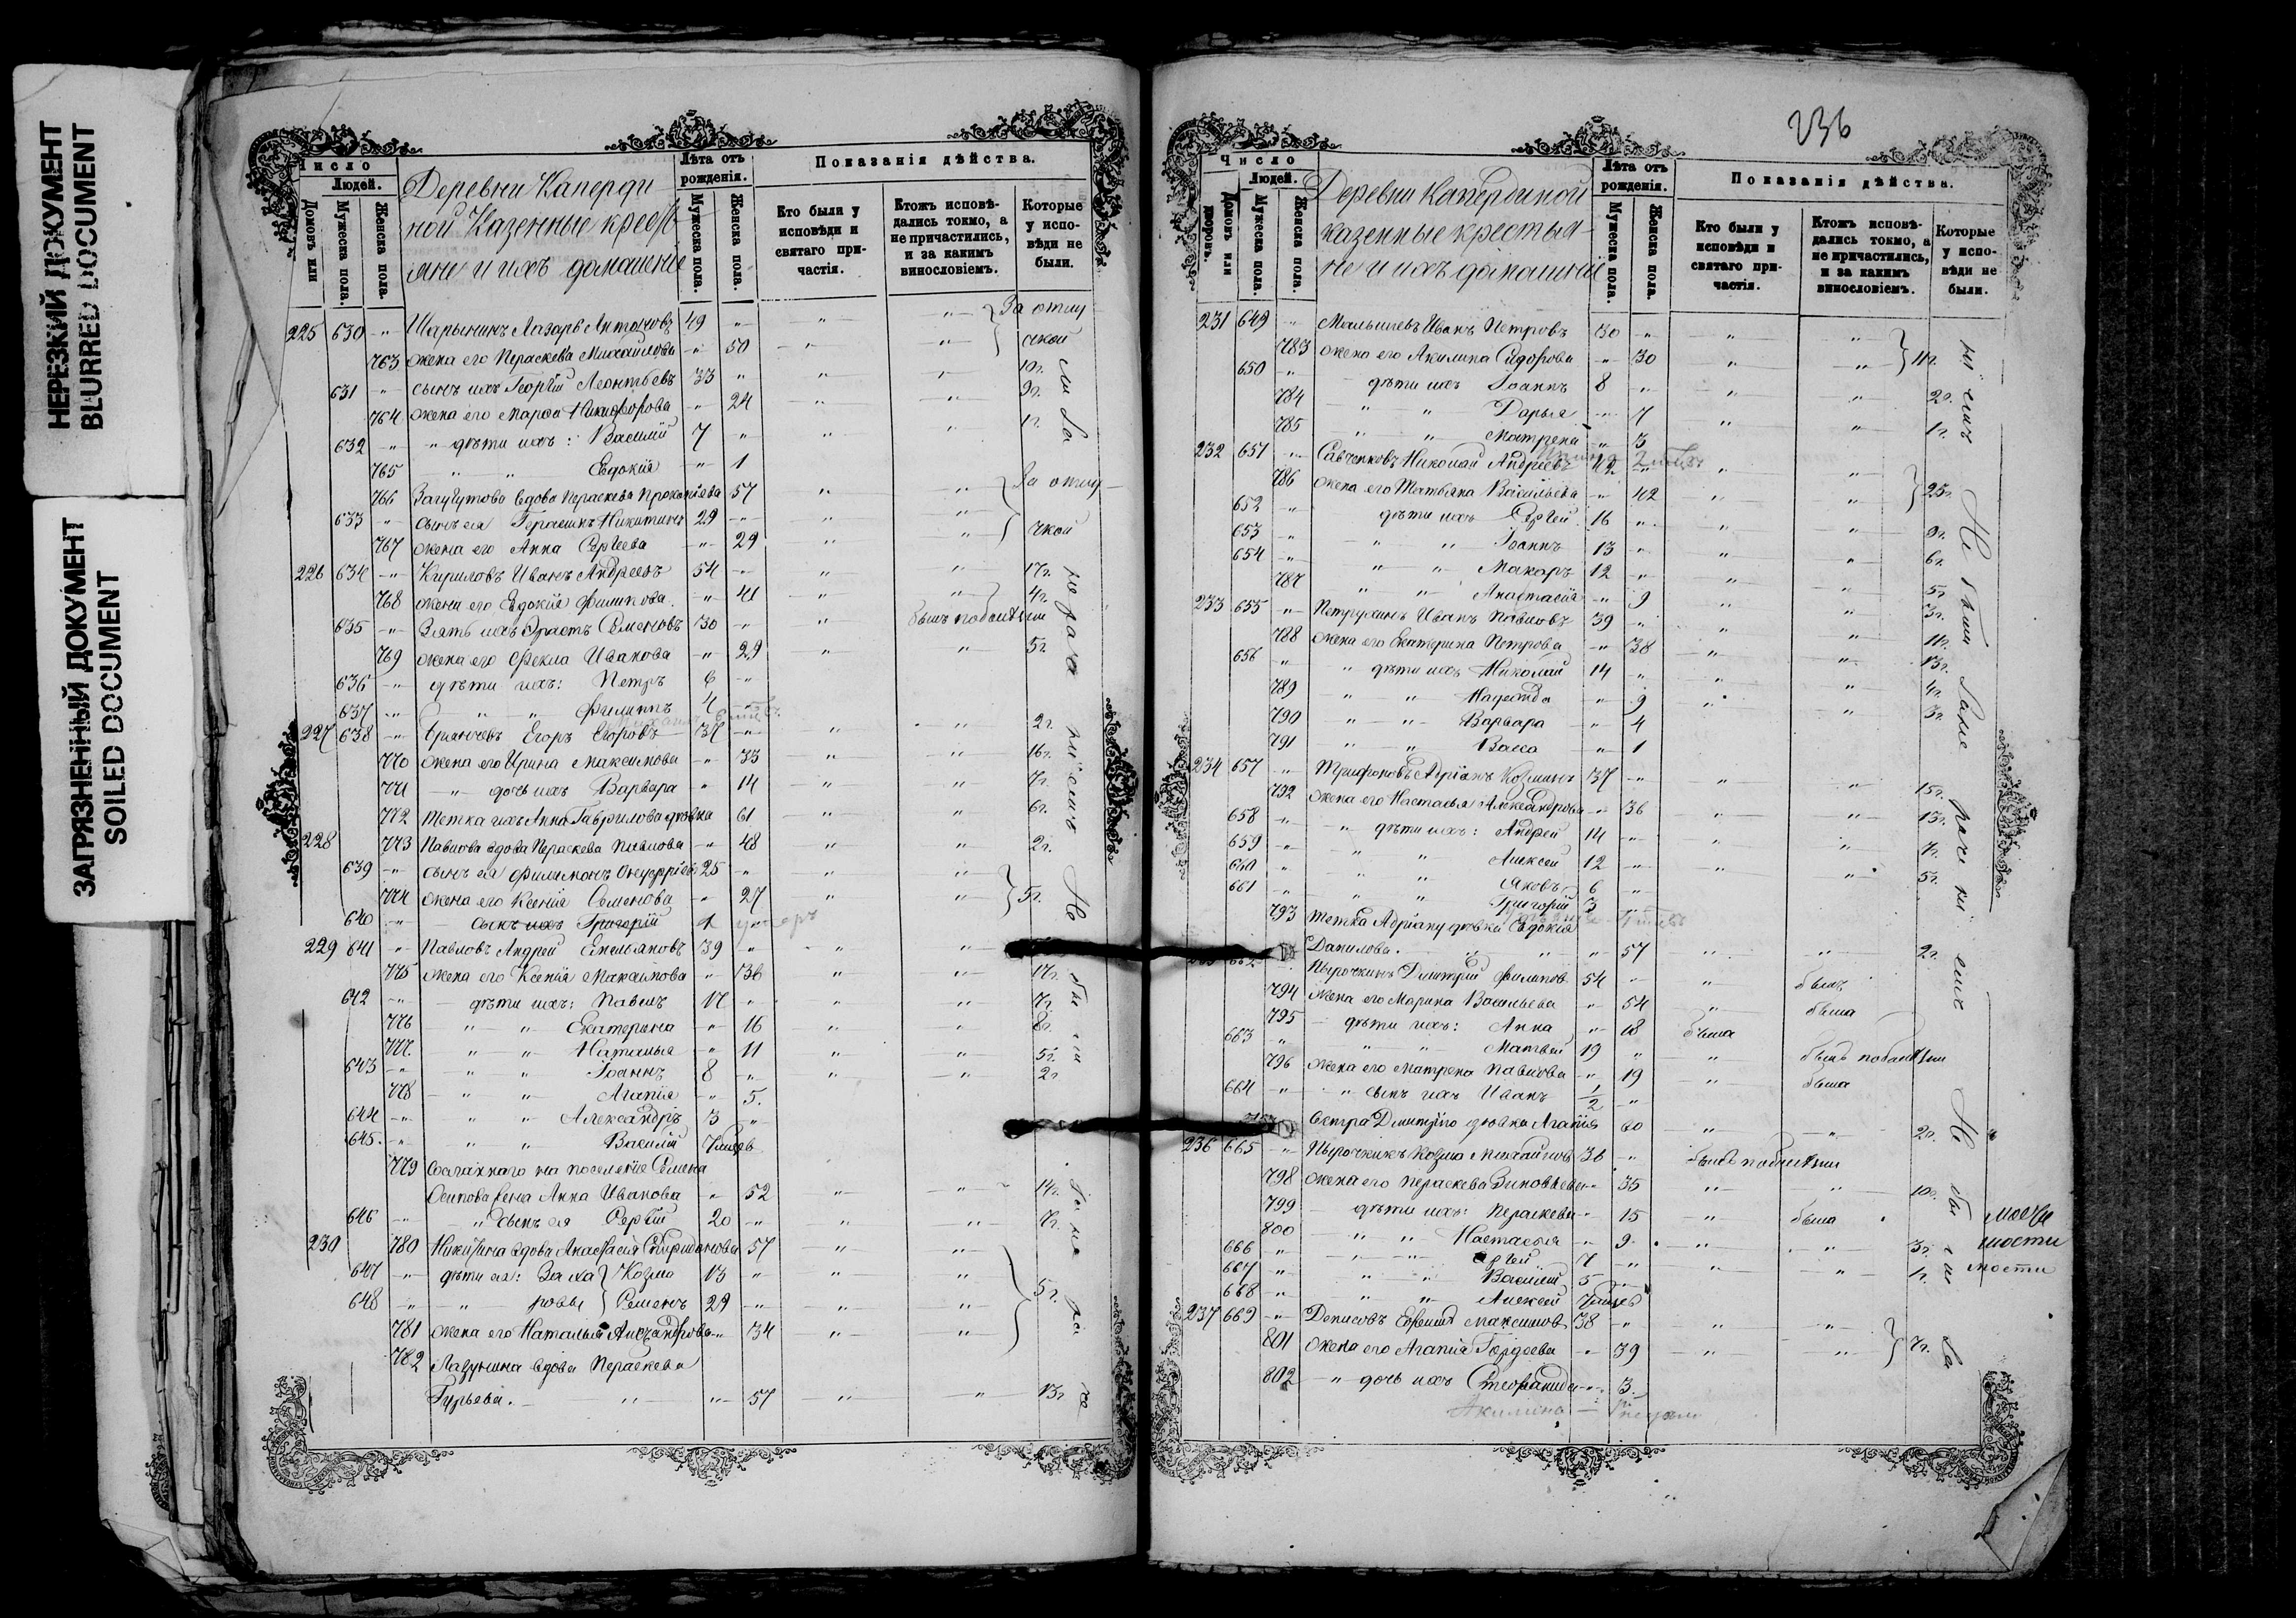 НЕРЕЗКИЙ ДОКУМЕНТ
BLURRED DOCUMENT
ЗАГРЯЗНЕННЫЙ ДОКУМЕНТ
SOILED DOCUMENT
Число
Людей.
Домовъ или
Мужеска пола.
Женска пола.
Деревни Каперди
ной Казенные крестья
яне и ихъ домашніе
Лѣта отъ рожденія.
Мужеска пола.
Женска пола.
Показанія дѣйства.
Кто были у исповѣди и святаго причастія.
Ктожъ исповѣдались токмо, а не причастились, и за какимъ винословіемъ.
Которые у исповѣди не были.
225 630 -„- Шарынинъ Лазарь Антоновъ 49 -„- За отлу
763 жена его Параскева Михайлова -„- 50 чкой
631 -„- сынъ ихъ Георгій Леонтьевъ 33 „ 10г.
764 жена его Марѳа Никифорова -„- 24 9г.
632 -„- „ дѣти ихъ: Василій 7 „ 1г.
765 „ „ Евдокія -„- 1
766 вдова Параскева Прокопіева 57 За отлу
633 -„- сынъ ея Герасимъ Никитинъ 29 -„-
767 жена его Анна Сергіева -„- 29 чкой
226 634 -„- Кириловъ Иванъ Андреевъ 54 -„- 17г.
768 жена его Евдокія Филипова -„- 41 4г.
635 -„- Зять ихъ Ерастъ Семеновъ 30 -„- былъ по болѣзни
769 жена его Ѳекла Иванова -„- 29 5г.
636 -„- дѣти ихъ: Петръ 6 -„-
637 -„- „ „ Филиппъ 4 -„-
227 638 -„- Егоръ Егоровъ 37 -„- 2г.
770 жена его Ирина Максимова -„- 33 16г.
771 -„- дочь ихъ Варвара „ 14 7г.
772 Тетка ихъ Анна Гаврилова дѣвка 61 6г.
228 773 Павлова вдова Параскева Павлова -„- 48 2г.
639 -„- сынъ ея Филимонъ Онуфріевъ 25 „
774 жена его Ксенія Семенова „ 27 5г.
640 -„- сынъ ихъ Григорій 1 умеръ
229 641 „ Павловъ Андрей Емельяновъ 39 „
775 жена его Ксенія Максимова „ 36 17г.
642 -„- дѣти ихъ: Павелъ 17 „ 7г.
776 „ „ Екатерина -„- 16 8г.
777 „ „ Наталья „ 11 5г.
643 -„- „ „ Іоаннъ 8 -„- 2г
778 „ „ Агапія „ 5.
644 -„- „ „ Александръ 3 „
645. -„- „ „ Василій
779 Сосланнаго на поселеніе Семена
Осипова жена Анна Иванова -„- 52 14г.
646 -„- „ сынъ ея Сергій 20 -„- 7г.
230 780 Никитина вдова Анастасія Спиридонова 57
647 -„- дѣти ея: Заха Козма 13 „
648 -„- „ ровы Семенъ 29 -„- 5г.
781 жена его Наталья Александрова „ 34
782 Лазунина вдова Параскева
Гурьева. „ -„- 57 13г
236
Число
Людей.
Домовъ или дворовъ.
Мужеска пола.
Женска пола.
Деревни Капердиной
казенные крестья-
не и ихъ домашніе
Лѣта отъ рожденія.
Мужеска пола.
Женска пола.
Показанія дѣйства.
Кто были у исповѣди и святаго причастія.
Ктожъ исповѣдались токмо, а не причастились, и за какимъ винословіемъ.
Которые у исповѣди не были.
231 649 „ Малышевъ Иванъ Петровъ 30 „
783 жена его Акилина Сидорова „ 30 11г.
650 „ дѣти ихъ Іоаннъ 8 „
784 „ „ Дарья „ 7 2г.
785 „ „ Матрена „ 3 1г.
232 651 -„- Савченковъ Николай Андреевъ 42
786 жена его Татьяна Васильева -„- 42 25г.
652 -„- дѣти ихъ Сергій 16 „
653 -„- „ „ Іоаннъ 13 „ 9г.
654 -„- „ „ Макаръ 12 „ 6г.
787 „ „ Анастасія „ 9 5г.
233 655 „ Петрухинъ Иванъ Павловъ 39 „ 3г.
788 жена его Екатерина Петрова „ 38 11г.
656 -„- „ дѣти ихъ Николай 14 „ 13г.
789 „ „ Надежда „ 9 4г.
790 „ „ Варвара „ 4 3г.
791 „ „ Васса „ 1
234 657 -„- Трифоновъ Адріанъ Козминъ 37 -„-
792 жена его Настасья Александрова „ 36 15г.
658 -„- „ дѣти ихъ: Андрей 14 „ 13г.
659 -„- „ „ Алексей 12 „ 7г.
660 „ „ „ Яковъ 6 „ 5г.
661 -„- „ „ Григорій 3 „
793 тетка Адріану дѣвка Евдокія
Данилова. „ „ „ 57 2г.
662 Пырочкинъ Димитрій Филипов 54 „ былъ
794 жена его Марина Васильева „ 54 была
795 дѣти ихъ: Анна „ 18 была
663 „ „ „ Матвей 19 „ былъ по болѣзни
796 жена его Матрена Павлова „ 19 была
664 -„- „ сынъ ихъ Иванъ 1/2 „
Сестра Димитрію дѣвка Агапія 60 2г.
236 665 -„- Пырочкинъ Козма Михайловъ 36 „ былъ по болѣзни
798 жена его Параскева Зиновьева „ 35 10г.
799 дѣти ихъ: Параскева „ 15 была
800 „ „ Настасья „ 9 3г.
666 „ „ „ Сергей 7 „ 1г.
667 „ „ „ Василій 5 „
668 „ „ „ Алексей
237 669 -„- Денисовъ Евфимъ Максимов 38 „
801 жена его Агапія Гордеева „ 39 7г.
802 „ дочь ихъ Стефанида „ 3
Акилина